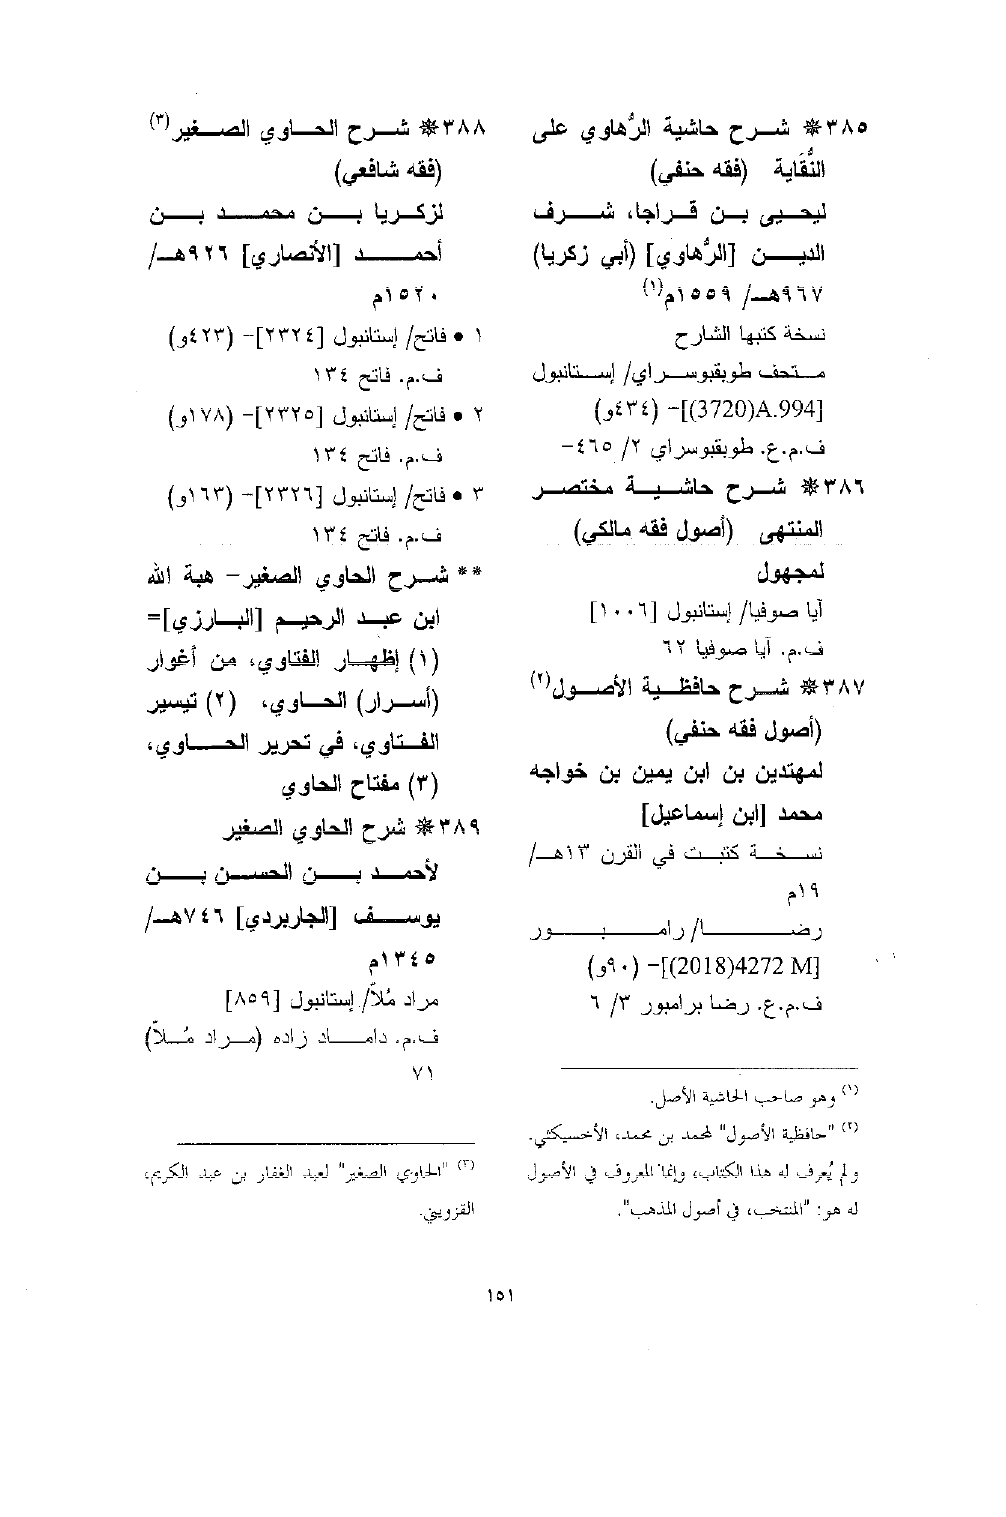 ٣٨٥❋ شرح حاشية الرُّهاوي على
النُّقَاية (فقه حنفي)
ليحيى بن قراجا، شرف
الدين [الرُّهاوي] (أبي زكريا)
٩٦٧هـ/ ١٥٥٩م(١)
نسخة كتبها الشارح
متحف طوبقبوسراي/ إستانبول
[3720)A.994)]- (٤٣٤و)
ف.م.ع. طوبقبوسراي ٢/ ٤٦٥-
٣٨٦❋ شرح حاشية مختصر
المنتهى (أصول فقه مالكي)
لمجهول
آيا صوفيا/ إستانبول [١٠٠٦]
ف.م. آيا صوفيا ٦٢
٣٨٧❋ شرح حافظية الأصول(٢)
(أصول فقه حنفي)
لمهتدين بن ابن يمين بن خواجه
محمد [ابن إسماعيل]
نسخة كتبت في القرن ١٣هـ/
١٩م
رضا/ رامبور
[2018)4272 M)]- (٩٠و)
ف.م.ع. رضا برامبور ٣/ ٦
(١) وهو صاحب الحاشية الأصل.
(٢) "حافظية الأصول" لمحمد بن محمد، الأخسيكثي.
ولم يُعرف له هذا الكتاب، وإنما المعروف في الأصول
له هو: "المنتخب، في أصول المذهب".
٣٨٨❋ شرح الحاوي الصغير(٣)
(فقه شافعي)
لزكريا بن محمد بن
أحمد [الأنصاري] ٩٢٦هـ/
١٥٢٠م
١ • فاتح/ إستانبول [٢٣٢٤]- (٤٢٣و)
ف.م. فاتح ١٣٤
٢ • فاتح/ إستانبول [٢٣٢٥]- (١٧٨و)
ف.م. فاتح ١٣٤
٣ • فاتح/ إستانبول [٢٣٢٦]- (١٦٣و)
ف.م. فاتح ١٣٤
** شرح الحاوي الصغير- هبة الله
ابن عبد الرحيم [البارزي]=
(١) إظهار الفتاوي، من أغوار
(أسرار) الحاوي، (٢) تيسير
الفتاوي، في تحرير الحاوي،
(٣) مفتاح الحاوي
٣٨٩❋ شرح الحاوي الصغير
لأحمد بن الحسن بن
يوسف [الجاربردي] ٧٤٦هـ/
١٣٤٥م
مراد مُلاّ/ إستانبول [٨٥٩]
ف.م. داماد زاده (مراد مُلاّ)
٧١
(٣) "الحاوي الصغير" لعبد الغفار بن عبد الكريم،
القزويني.
١٥١